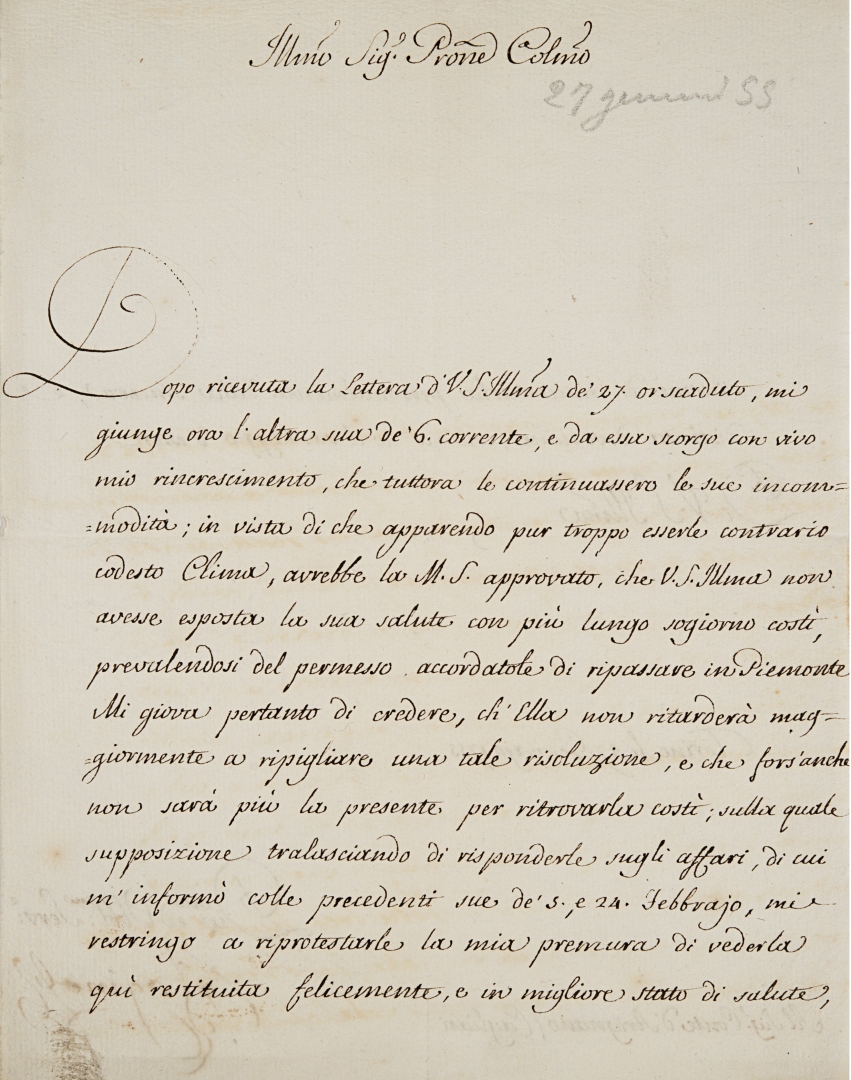 Illmo Sig.r Prone Colmo
27 gennai 55
Dopo ricevuta la Lettera d'V.S.Illma de' 27. orscaduto, mi
giunge ora l'altra sua de' 6. corrente, e da essa scorgo con vivo
mio rincrescimento, che tuttora le continuassero le sue incom=
=modità; in vista di che apparendo pur troppo esserle contrario
codesto Clima, avrebbe la M. S. approvato, che V. S. Illma non
avesse esposta la sua salute con più lungo sogiorno costì,
prevalendosi del permesso accordatole di ripassare in Piemonte
Mi giova pertanto di credere, ch'Ella non ritarderà mag=
=giormente a ripigliare una tale risoluzione, e che fors'anche
non sarà più la presente per ritrovarla costì; sulla quale
supposizione tralasciando di risponderle sugli affari, di cui
m'informò colle precedenti sue de' 5., e 24. Febbrajo, mi
restringo a riprotestarle la mia premura di vederla
quì restituita felicemente, e in migliore stato di salute,